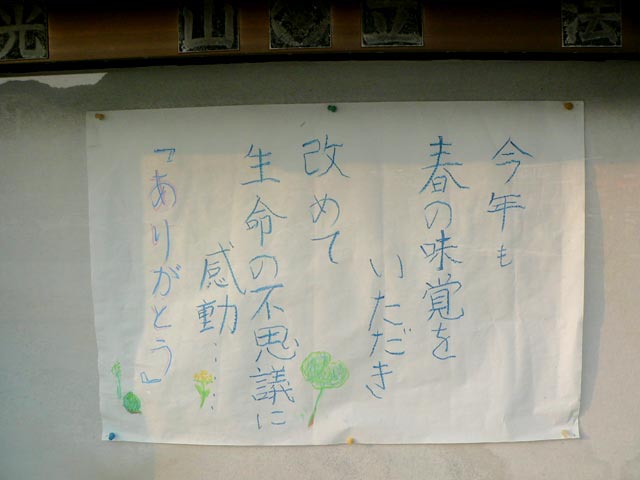 光 山 立 法
今年も
春の味覚を
いただき
改めて
生命の不思議に
感動……
『ありがとう』